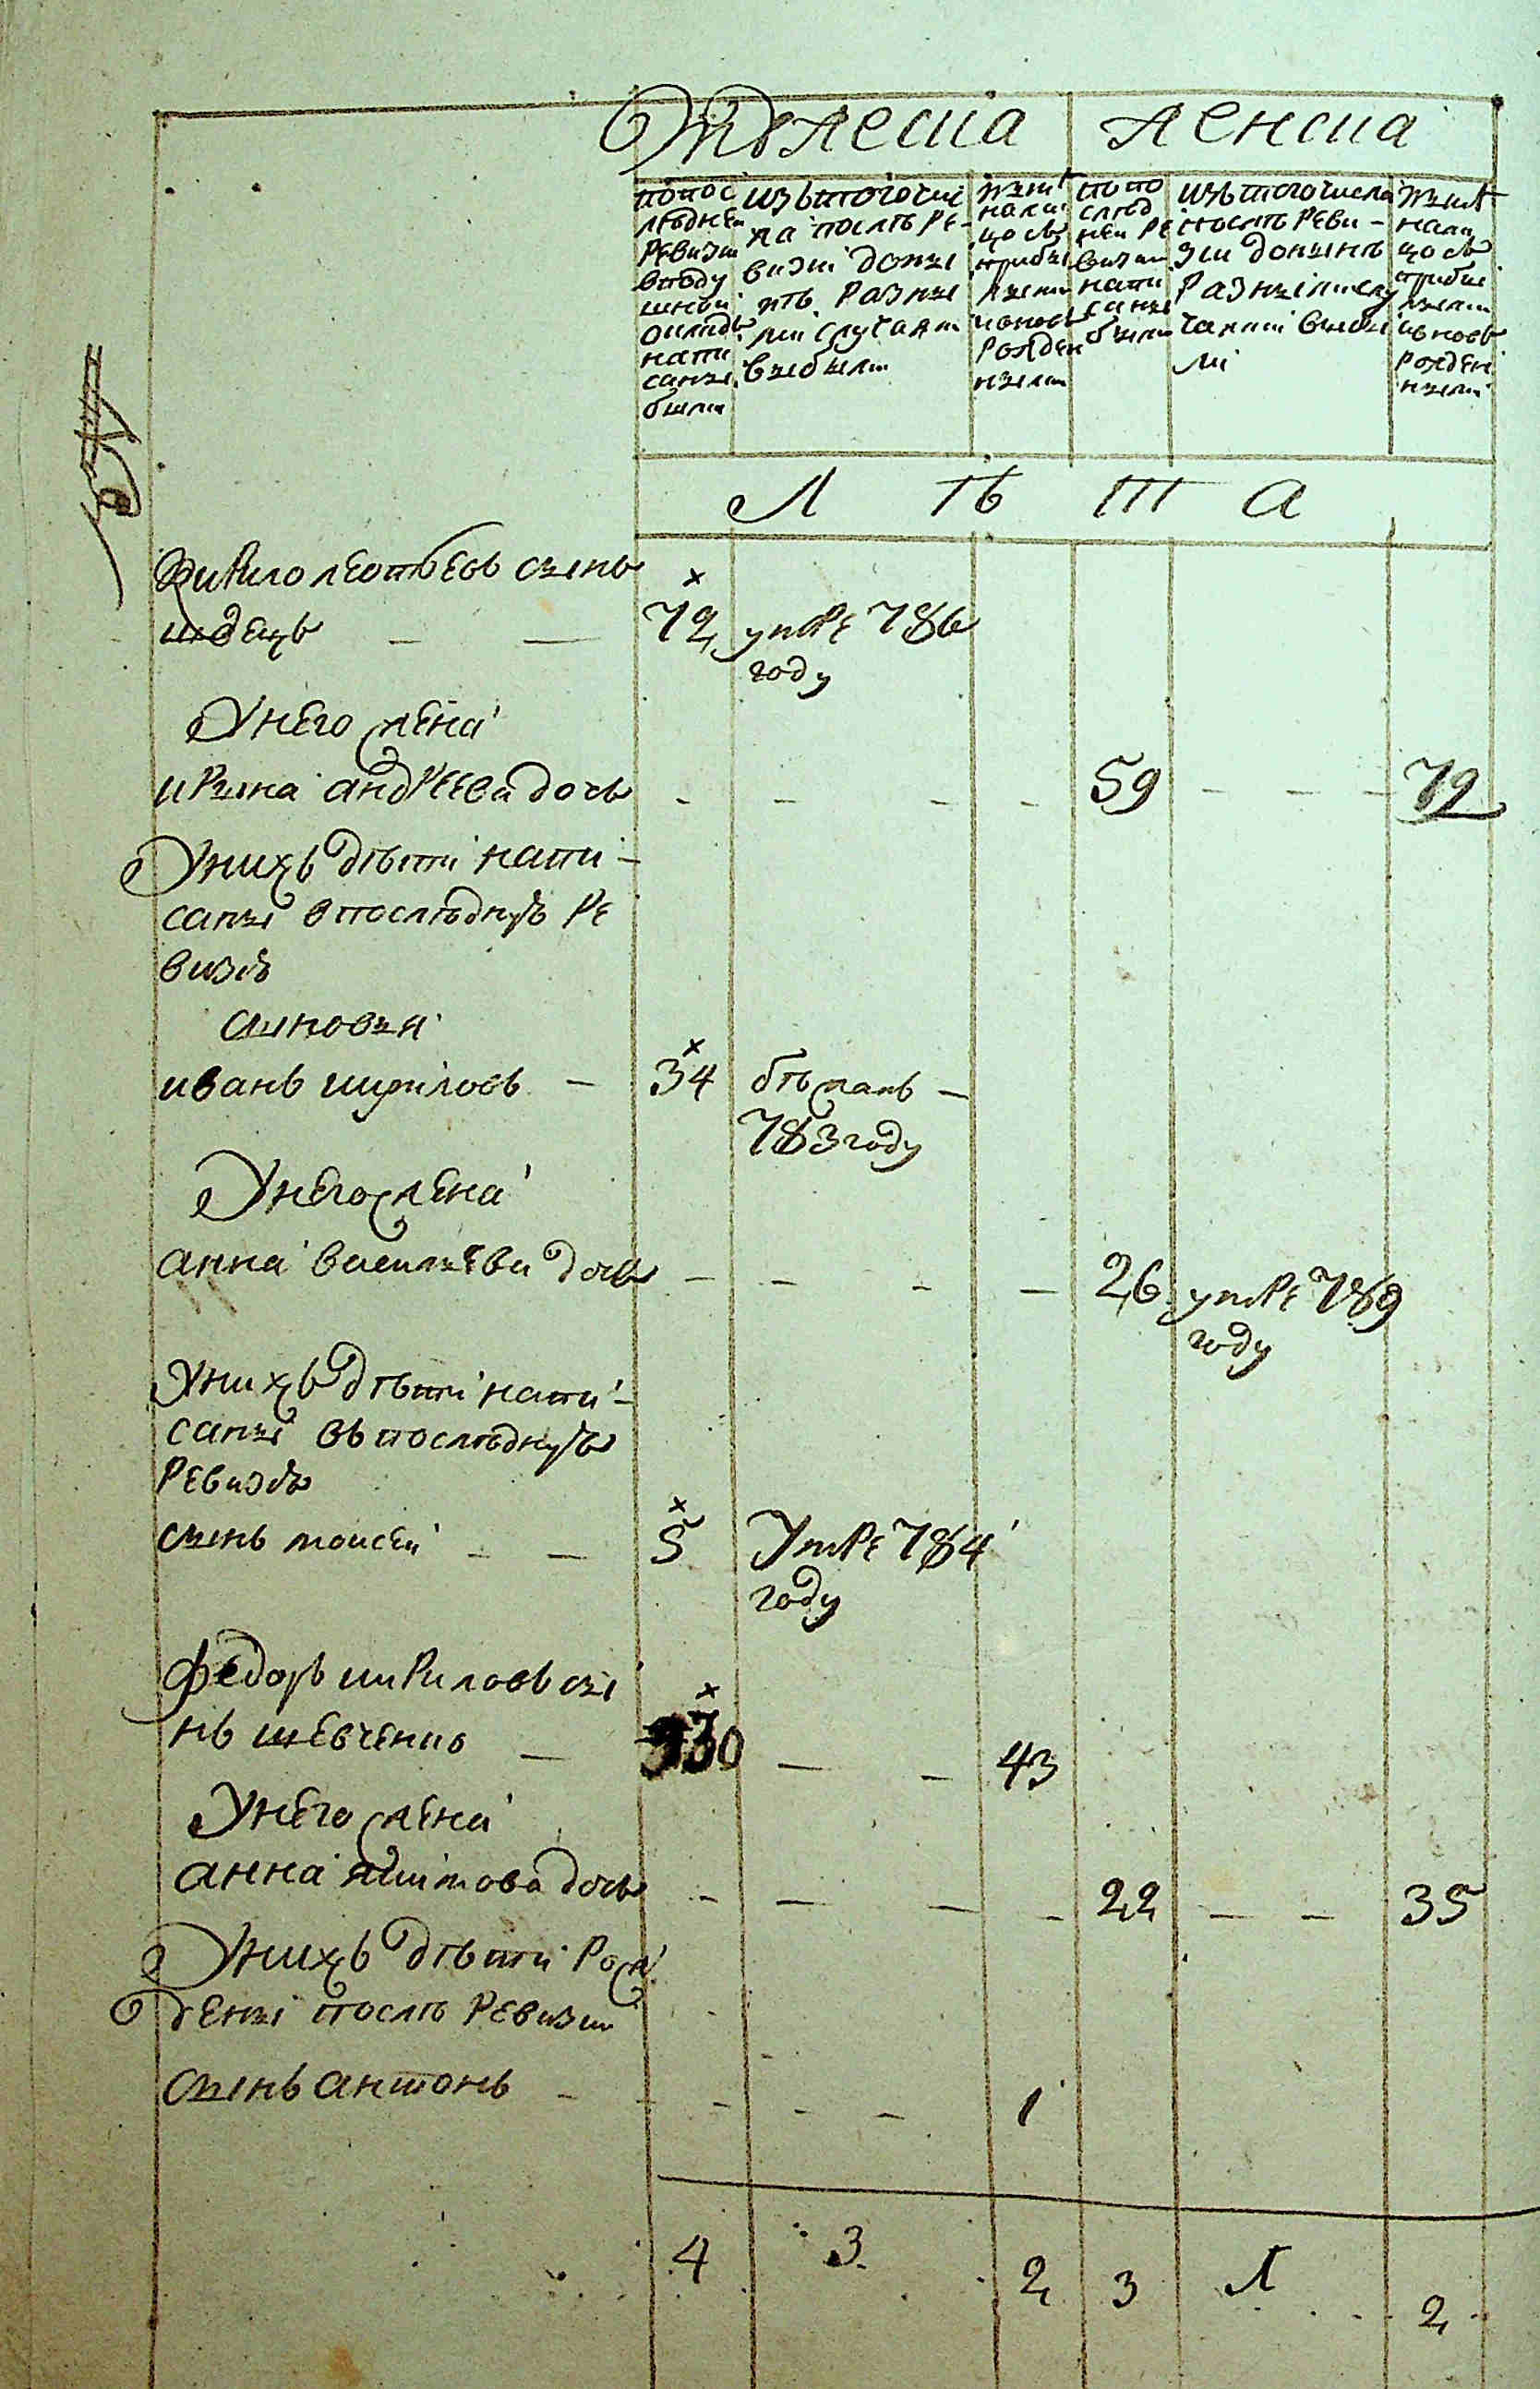 Мужеска женска
по пос
лѣдней
ревизіи
в поду
шной
окладъ
напи
саны
были
изътогочис
ла послѣ ре-
визіи до ны
нѣ разны
ми случаями
выбыли
нынѣ
на ли
цо съ
прибы
лыми
и вновь
рожден
ными
по по
слѣд
ней ре
визіи
напи
саны
были
изъ того числа
послѣ реви-
зіи до нынѣ
разными слу
чаями выбы
ли
нынѣ
на ли
цо съ
прибы
лыми
и вновь
рожден
ными
Л ѣ т а
Кирило леонтьевъ сынъ
швецъ — — 72 умре 786
году
У него жена
ирина андреева дочь - - - - 59 - - - 72
У нихъ дѣти напи-
саны в последную ре
визію
синовья
иванъ кириловъ — 34 бѣжалъ —
783 году
У него жена
анна василева дочь — - - — 26 умре 789
году
У нихъ дѣти напи-
саны въ последную
ревизію
сынъ моисей — — 5 умре 784
году
федоръ кириловъ сы
нъ шевченко — 30 — - 43
У него жена
анна якимова дочь - — — - 22 — — 35
У нихъ дѣти рож
дены послѣ ревизіи
сынъ антонъ - - - - — 1
4 3 2 3 1 2